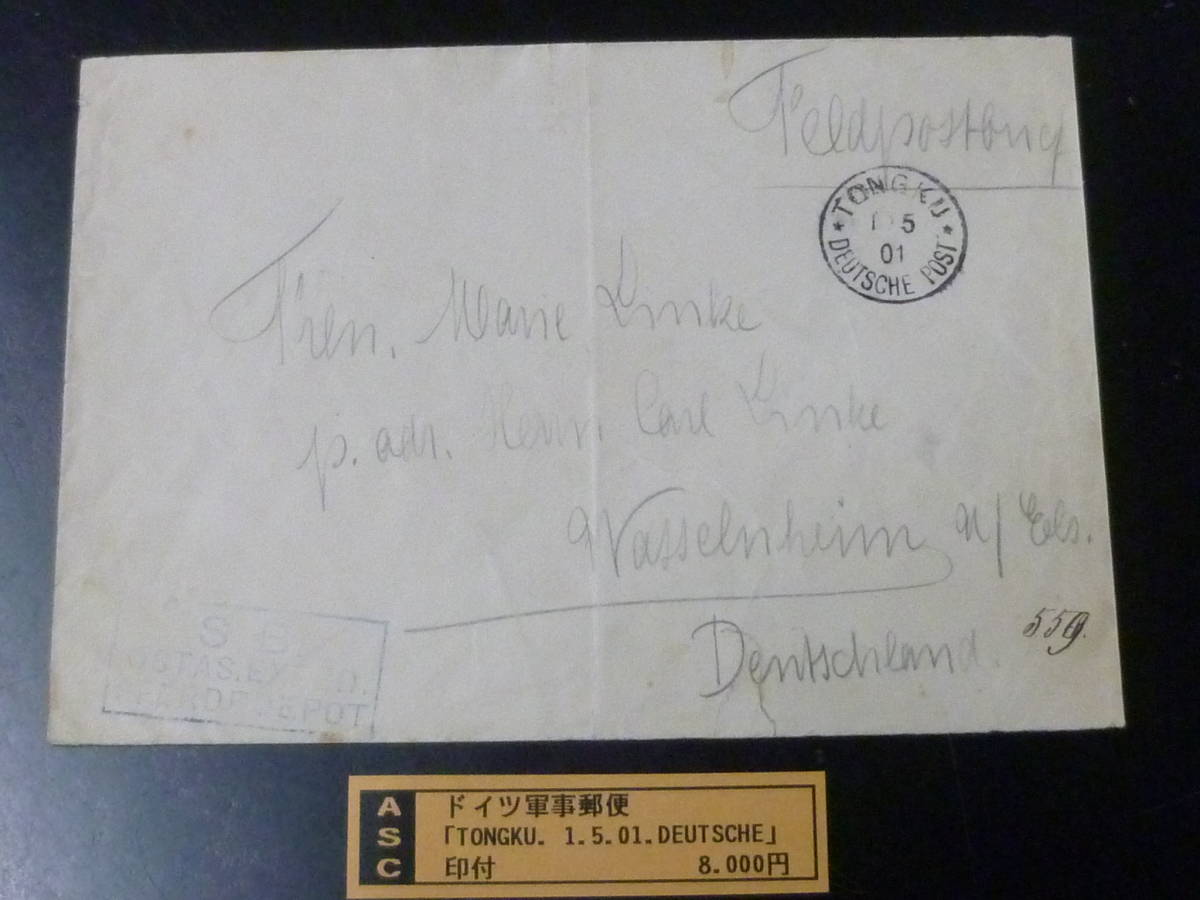 Feldpostbrief
TONGKU
5
01
DEUTSCHE POST
Marie Linke
p. adr. Herrn. Carl Linke
Wasselnheim i/ Els.
Deutschland.
559.
S. B.
OSTAS. EX D.
PFERDEDEPOT
A S C
ドイツ軍事郵便
「TONGKU. 1.5.01.DEUTSCHE」
印付 8.000円